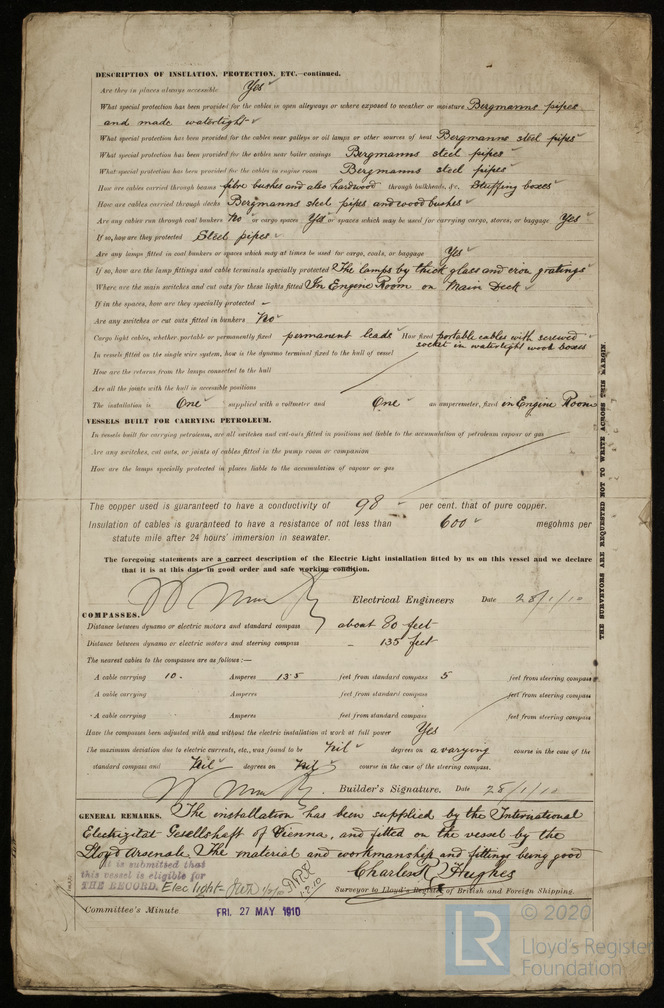 DESCRIPTION OF INSULATION, PROTECTION, ETC.—continued.
Are they in places always accessible Yes
What special protection has been provided for the cables in open alleyways or where exposed to weather or moisture Bergmanns pipes
and made watertight
What special protection has been provided for the cables near galleys or oil lamps or other sources of heat Bergmanns steel pipes
What special protection has been provided for the cables near boiler casings Bergmanns steel pipes
What special protection has been provided for the cables in engine room Bergmanns steel pipes
How are cables carried through beams fibre bushes and also hardwood through bulkheads, &c. Stuffing boxes
How are cables carried through decks Bergmanns steel pipes and wood bushes
Are any cables run through coal bunkers No or cargo spaces Yes or spaces which may be used for carrying cargo, stores, or baggage Yes
If so, how are they protected Steel pipes
Are any lamps fitted in coal bunkers or spaces which may at times be used for cargo, coals, or baggage Yes
If so, how are the lamp fittings and cable terminals specially protected The lamps by thick glass and iron gratings
Where are the main switches and cut outs for these lights fitted In Engine Room on Main Deck
If in the spaces, how are they specially protected –
Are any switches or cut outs fitted in bunkers No
Cargo light cables, whether portable or permanently fixed permanent leads How fixed portable cables with screwed
socket in watertight wood boxes
In vessels fitted on the single wire system, how is the dynamo terminal fixed to the hull of vessel
How are the returns from the lamps connected to the hull
Are all the joints with the hull in accessible positions
The installation is One supplied with a voltmeter and One an amperemeter, fixed in Engine Room
VESSELS BUILT FOR CARRYING PETROLEUM.
In vessels built for carrying petroleum, are all switches and cut-outs fitted in positions not liable to the accumulation of petroleum vapour or gas
Are any switches, cut outs, or joints of cables fitted in the pump room or companion
How are the lamps specially protected in places liable to the accumulation of vapour or gas
The copper used is guaranteed to have a conductivity of 98 per cent. that of pure copper.
Insulation of cables is guaranteed to have a resistance of not less than 600 megohms per
statute mile after 24 hours' immersion in seawater.
The foregoing statements are a correct description of the Electric Light installation fitted by us on this vessel and we declare
that it is at this date in good order and safe working condition.
Electrical Engineers Date 28/1/10
COMPASSES.
Distance between dynamo or electric motors and standard compass about 80 feet
Distance between dynamo or electric motors and steering compass – 135 feet
The nearest cables to the compasses are as follows:—
A cable carrying 10. Amperes 135 feet from standard compass 5 feet from steering compass
A cable carrying Amperes feet from standard compass feet from steering compass
A cable carrying Amperes feet from standard compass feet from steering compass
Have the compasses been adjusted with and without the electric installation at work at full power Yes
The maximum deviation due to electric currents, etc., was found to be Nil degrees on a varying course in the case of the
standard compass and Nil degrees on Nil course in the case of the steering compass.
Builder's Signature. Date 28/1/10
GENERAL REMARKS. The installation has been supplied by the International
Elecrizitat Gesellshaft of Vienna, and fitted on the vessel by the
Lloyd Arsenale. The material and workmanship and fittings being good
It is submitted that
this vessel is eligible for
THE RECORD. Elec light
Charles R Hughes
Surveyor to Lloyd's Register of British and Foreign Shipping.
Committee's Minute FRI. 27 MAY 1910
THE SURVEYORS ARE REQUESTED NOT TO WRITE ACROSS THIS MARGIN
LR © 2020
Lloyd's Register
Foundation